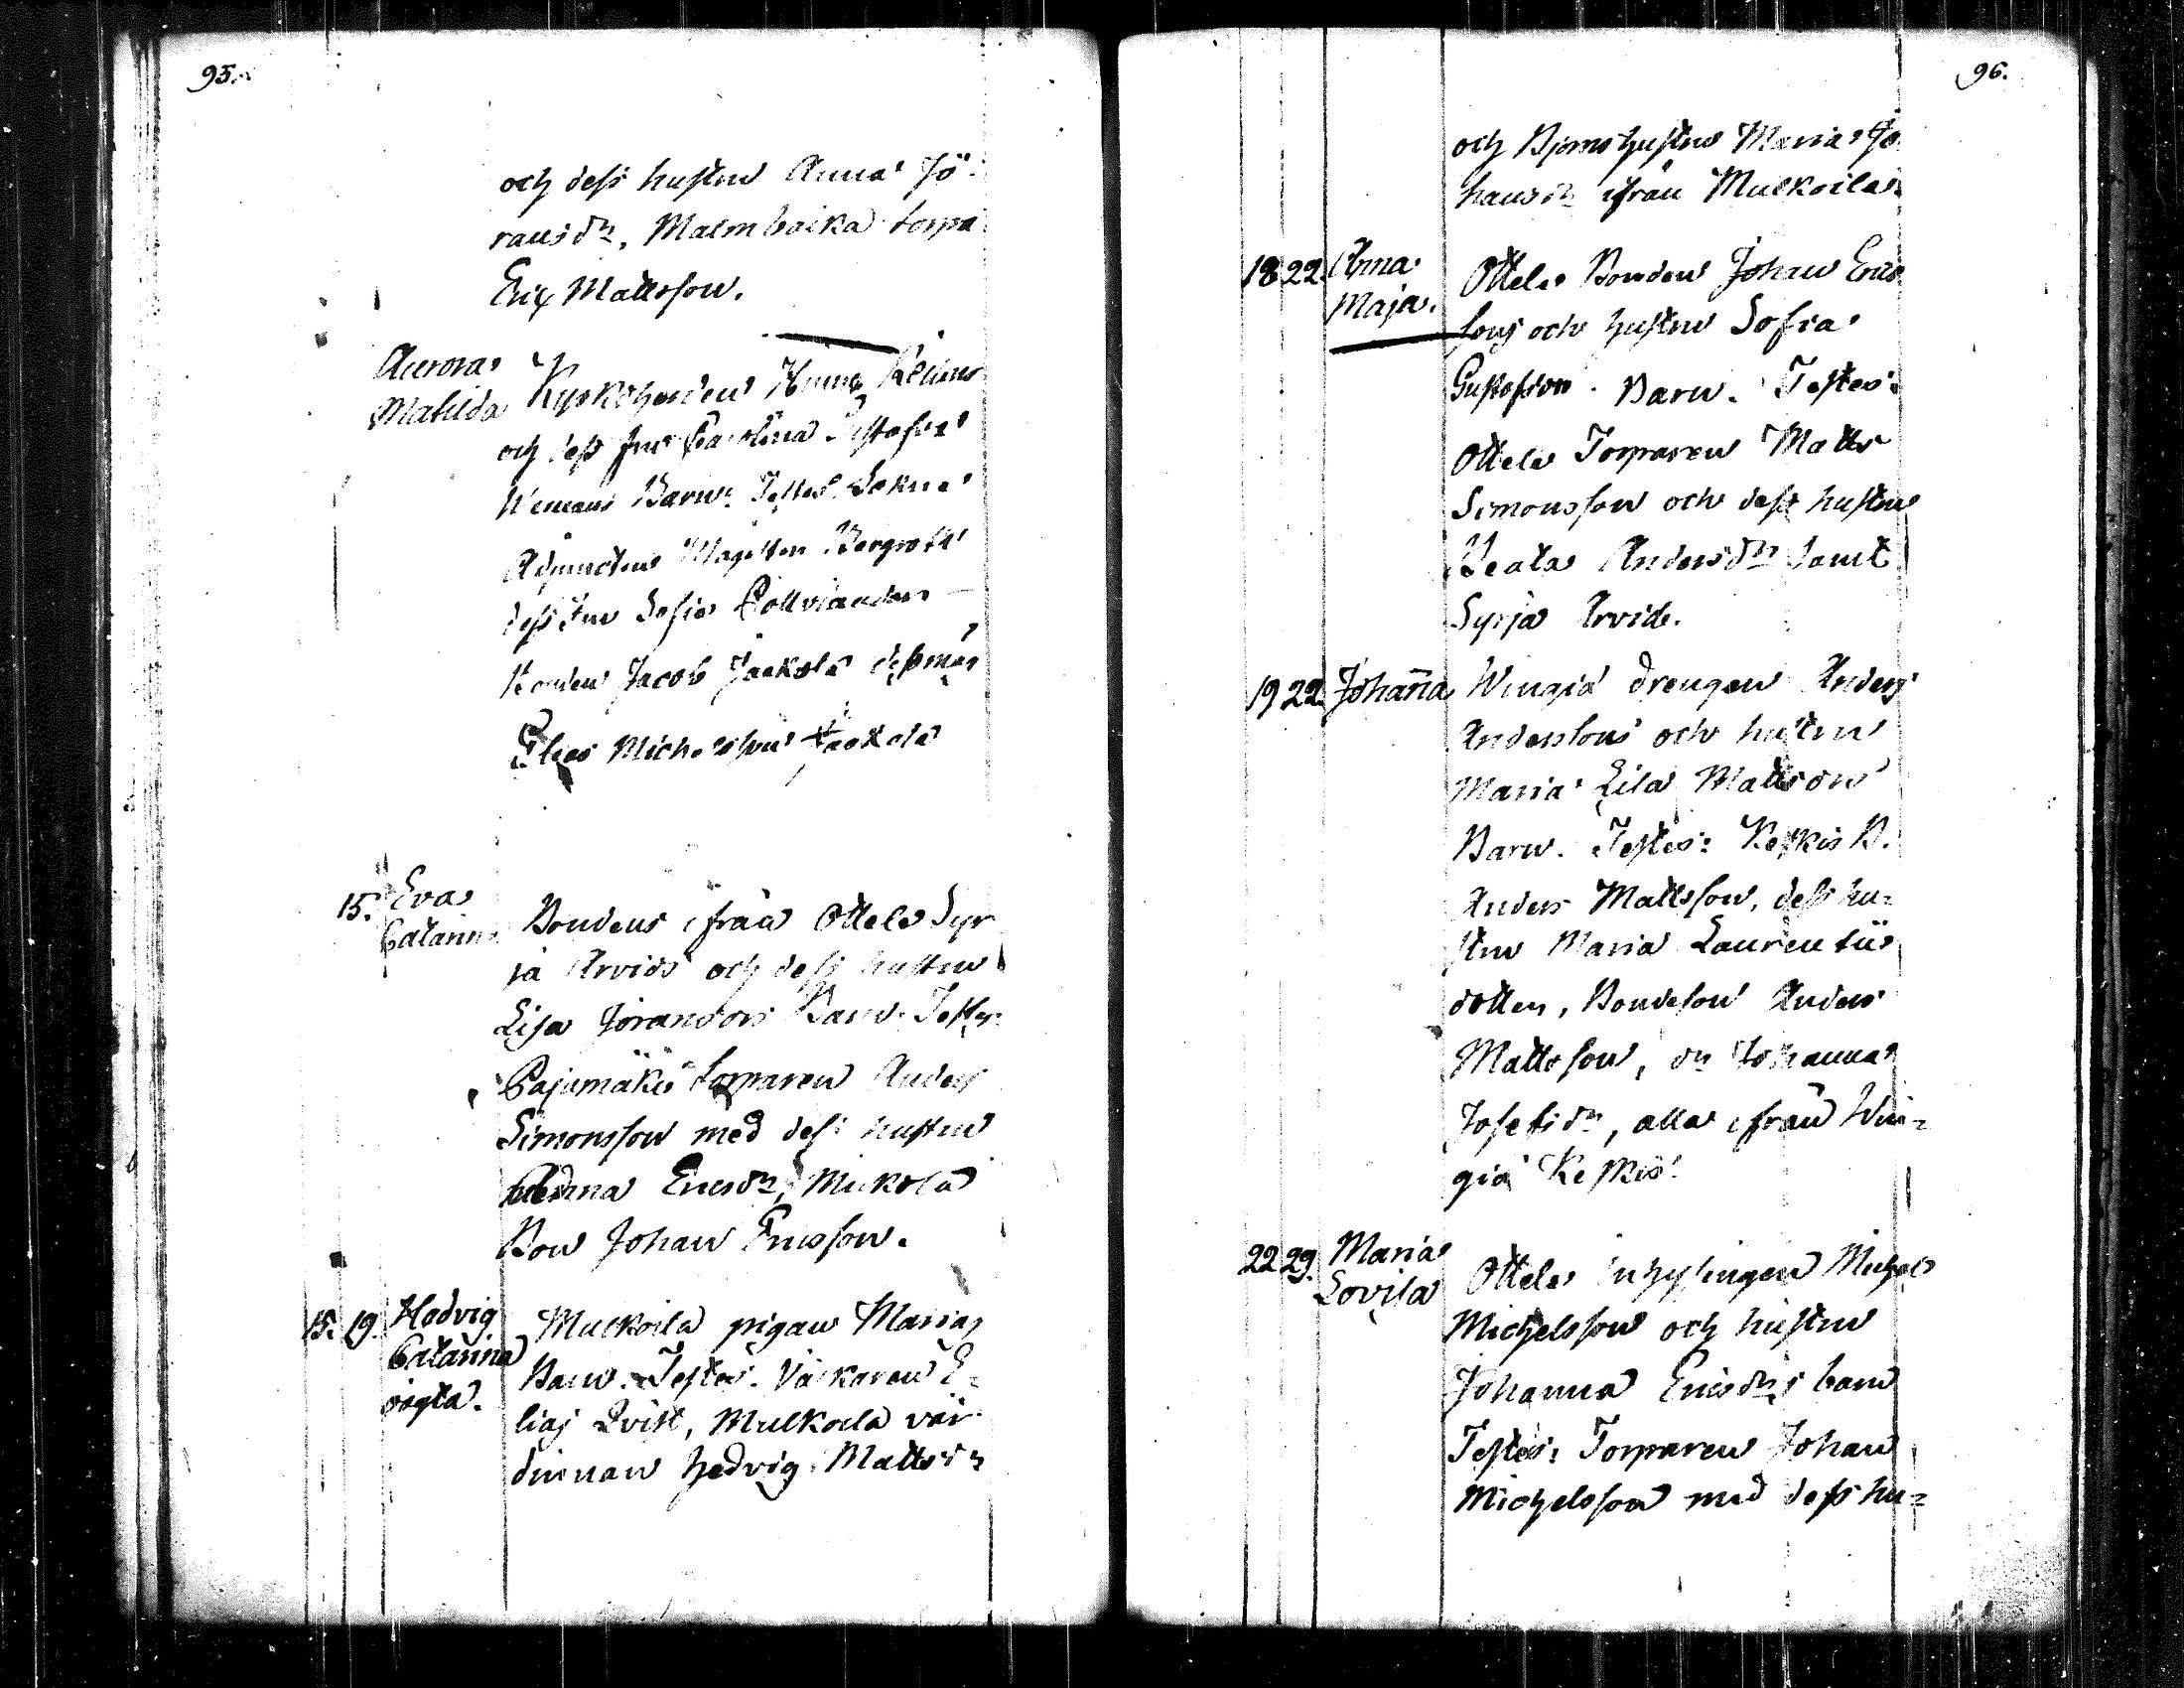 95.
och dess hustru Anna Jö-
ransdr, Malmbacka torpa
Eric Mattsson.
Aurora
Matilda
Kyrkoherden
och dess fru Carolina Gustafva
Barn. Testes. Sokne
Adjuncten Magister Bergroth
dess fru Sofia
Bonden Jacob Jaakola dess måg
Elias Michelsson Jaakola
15. Eva
Catarina
Bondens ifrån Ottela Syr
jä Arvids och dess hustru
Lisa Jörandrs Barn. Testes:
Pajumäki torparen Anders
Simonsson med dess hustru
Ericsdr, Mickola
Bon Johan Ericsson.
15. 19. Hedvig
Catarina
oägta.
Mulkoila pigan Marias
Barn. Testes. Väckaren E-
lias Qvist, Mulkoila vär-
dinnan Hedvig Mattsdr
96.
och Bjons hustru Maria Jo
hansdr ifrån Mulkoila
18 22. Anna
Maja.
Ottela Bonden Johan Erics
sons och hustru Sofia
Gustafsdrs Barn. Testes:
Ottela Torparen Matts
Simonsson och dess hustru
Beata Andersdr samt
Syrjä Arvid.
19 22. Johanna Wingiä drengen Anders
Anderssons och hustru
Maria Lisa Mattsdrs
Barn. Testes: Keskis B.
Anders Mattsson, dess hu-
stru Maria Laurentii
dotter, Bondeson Anders
Mattsson, dr Johanna
Josefsdr, alla ifrån Win-
giä Keskis.
22 29. Maria
Lovisa
Ottela inhysingen Michel
Michelsson och hustru
Johanna Ericsdrs barn
Testes: Torparen Johan
Michelsson med dess hu-